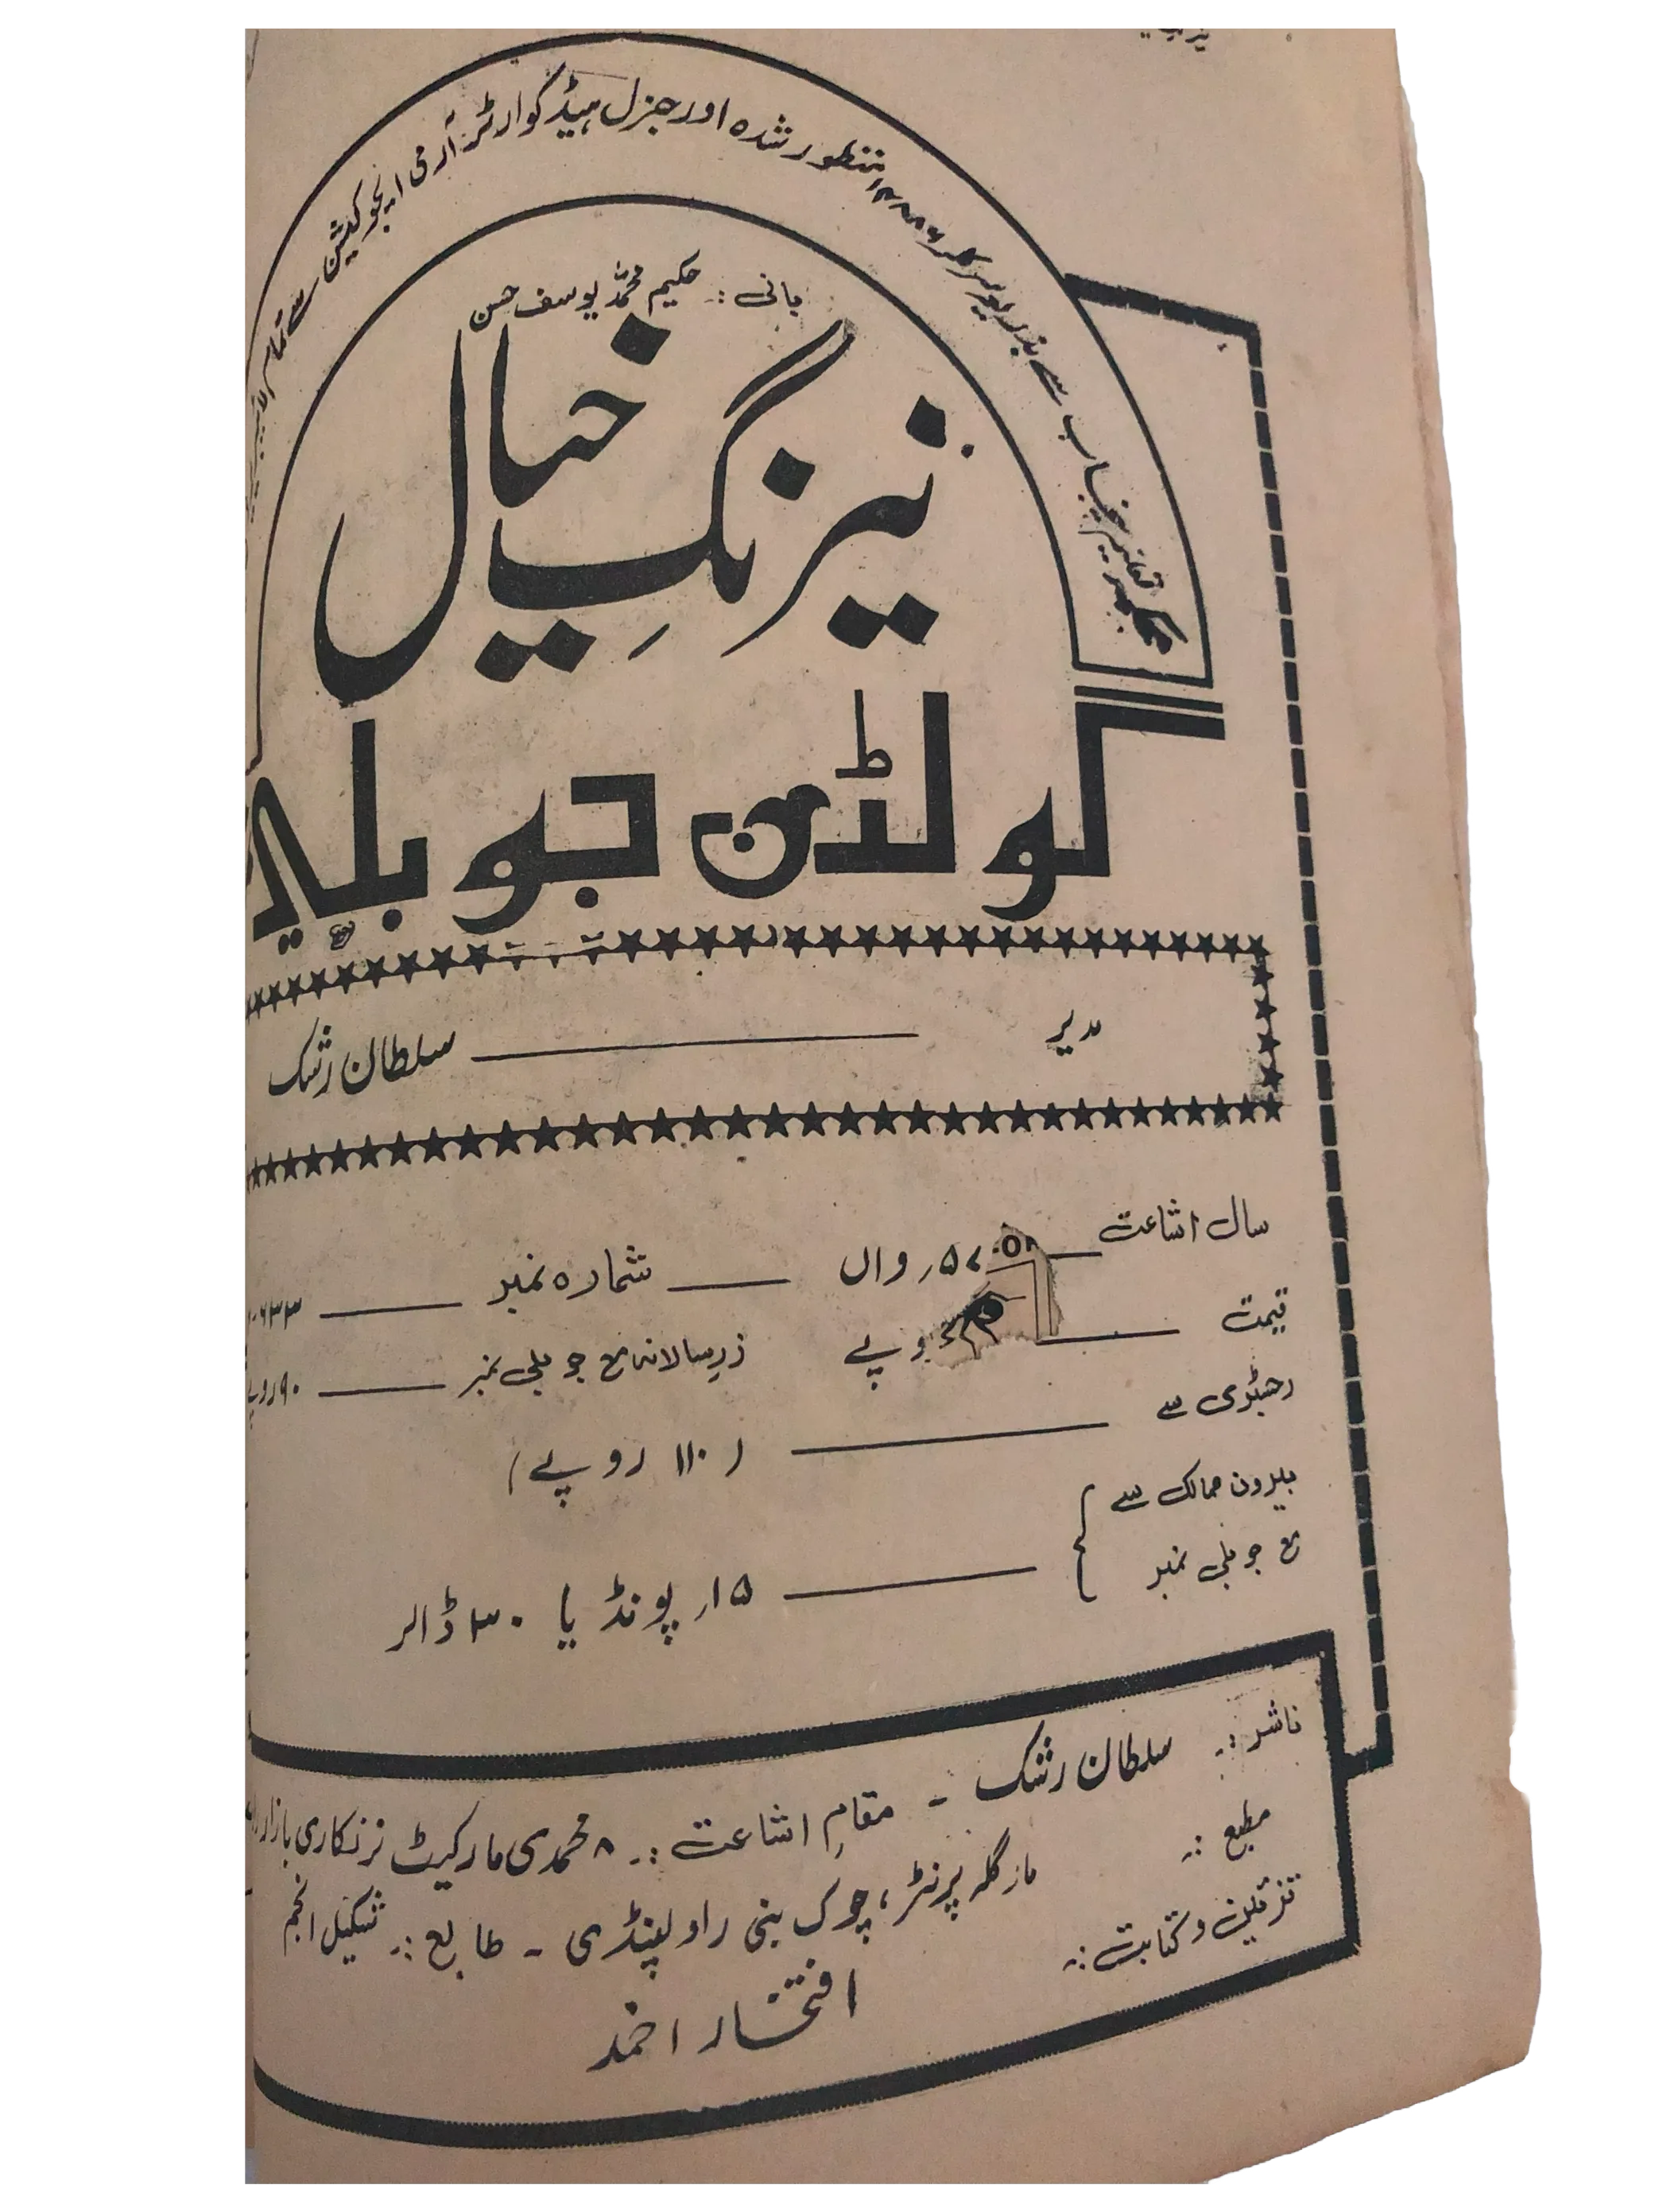 محکمہ تعلیم پنجاب سے بذریعہ سرکلر منظور شدہ اور جنرل ہیڈ کوارٹرز آرمی ایجوکیشن سے تمام
بانی :۔ حکیم محمد یوسف حسن
نیرنگِ خیال
گولڈن جوبلی
مدیر ——— سلطان رشک
سال اشاعت ——— ۵۷؍ واں ——— شمارہ نمبر ——— ۶۳۳
قیمت ——— روپے زرِسالانہ مع جوبلی نمبر ——— ۹۰ روپے
رجسٹری سے ——— ( ۱۱۰ روپے )
بیرون ممالک سے
مع جوبلی نمبر ——— ۱۵؍ پونڈ یا ۳۰ ڈالر
ناشر :۔ سلطان رشک ۔ مقامِ اشاعت :۔ ۸ محمدی مارکیٹ نرنکاری بازار
مطبع :۔ مارگلہ پرنٹر، چوک بنی راولپنڈی ۔ طابع :۔ شکیل انجم
تزئین و کتابت :۔ افتخار احمد